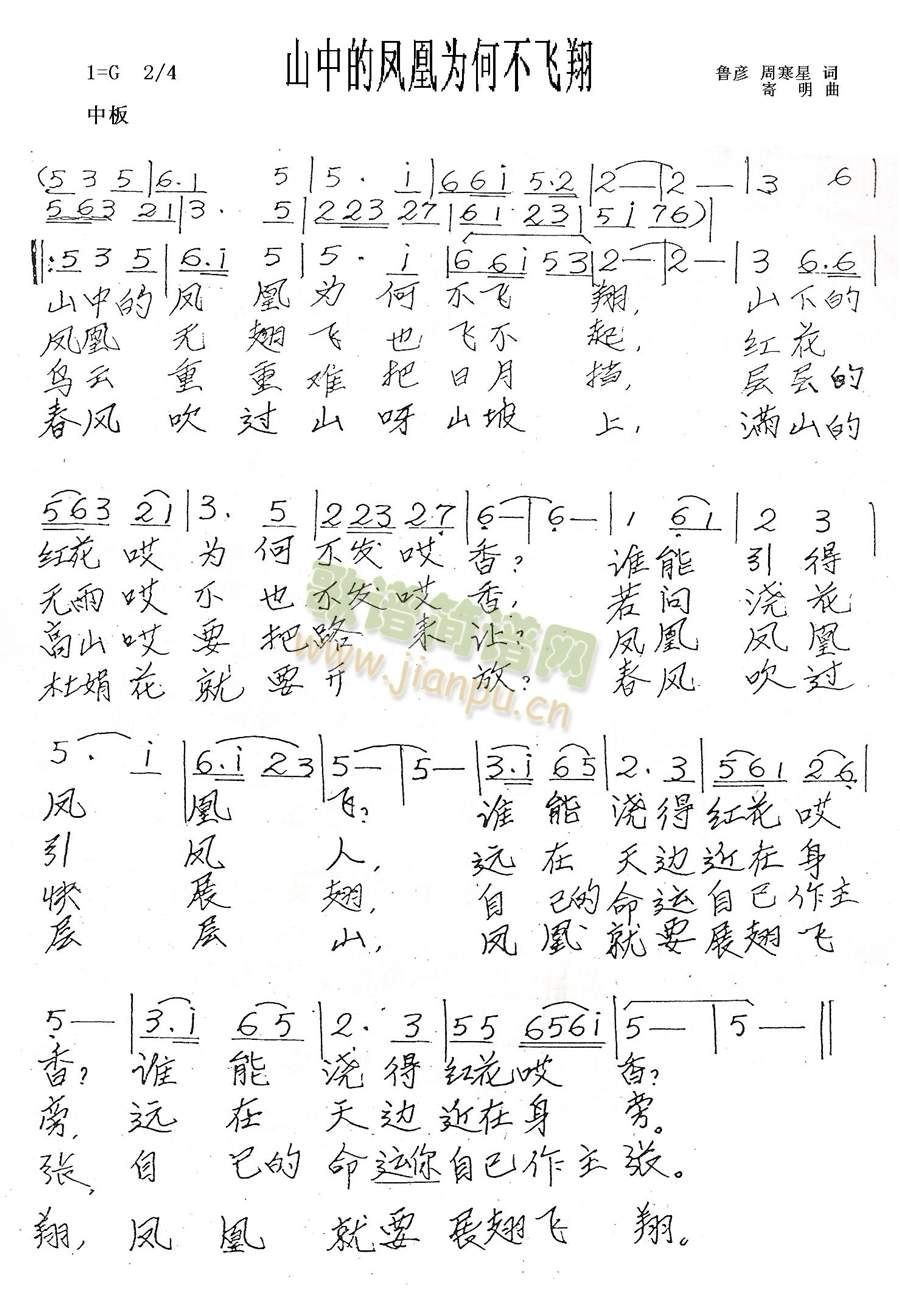 山中的凤凰为何不飞翔
1=G 2/4
鲁彦 周寒星 词
寄 明 曲
中板
(5 3 5|6.1 5|5. i|66i 5.2|2—|2—|3 6|
563 21|3. 5|223 27|61 23|5i 76)|
‖:5 3 5|6.i 5|5. i|6 6i 53|2—|2—|3 6.6|
山中的 凤 凰 为 何 不飞 翔, 山下的
凤凰 无 翅 飞 也 飞不 起, 红花
乌云 重 重 难 把 日月 挡, 层层的
春风 吹 过 山 呀 山坡 上, 满山的
563 21|3. 5|223 27|6—|6—|1 61|2 3|
红花 哎 为 何 不发 哎 香? 谁能 引 得
无雨 哎 不 也 不发 哎 香, 若问 浇 花
高山 哎 要 把 路 来 让? 凤凰 凤 凰
杜娟 花 就 要 开 放? 春风 吹 过
歌谱简谱网
www.jianpu.cn
5. i|6.i 23|5—|5—|3.i 65|2. 3|561 26|
凤 凰 飞? 谁 能 浇 得 红花 哎
引 凤 人, 远 在 天 边 近在 身
快 展 翅, 自 己的 命 运 自己 作主
层 层 山, 凤 凰 就 要 展翅 飞
5—|3.i 65|2. 3|55 656i|5—|5—‖
香? 谁 能 浇 得 红花 哎 香?
旁, 远 在 天 边 近在 身 旁。
张, 自 己的 命 运你 自己 作主 张。
翔, 凤 凰 就 要 展翅飞 翔。